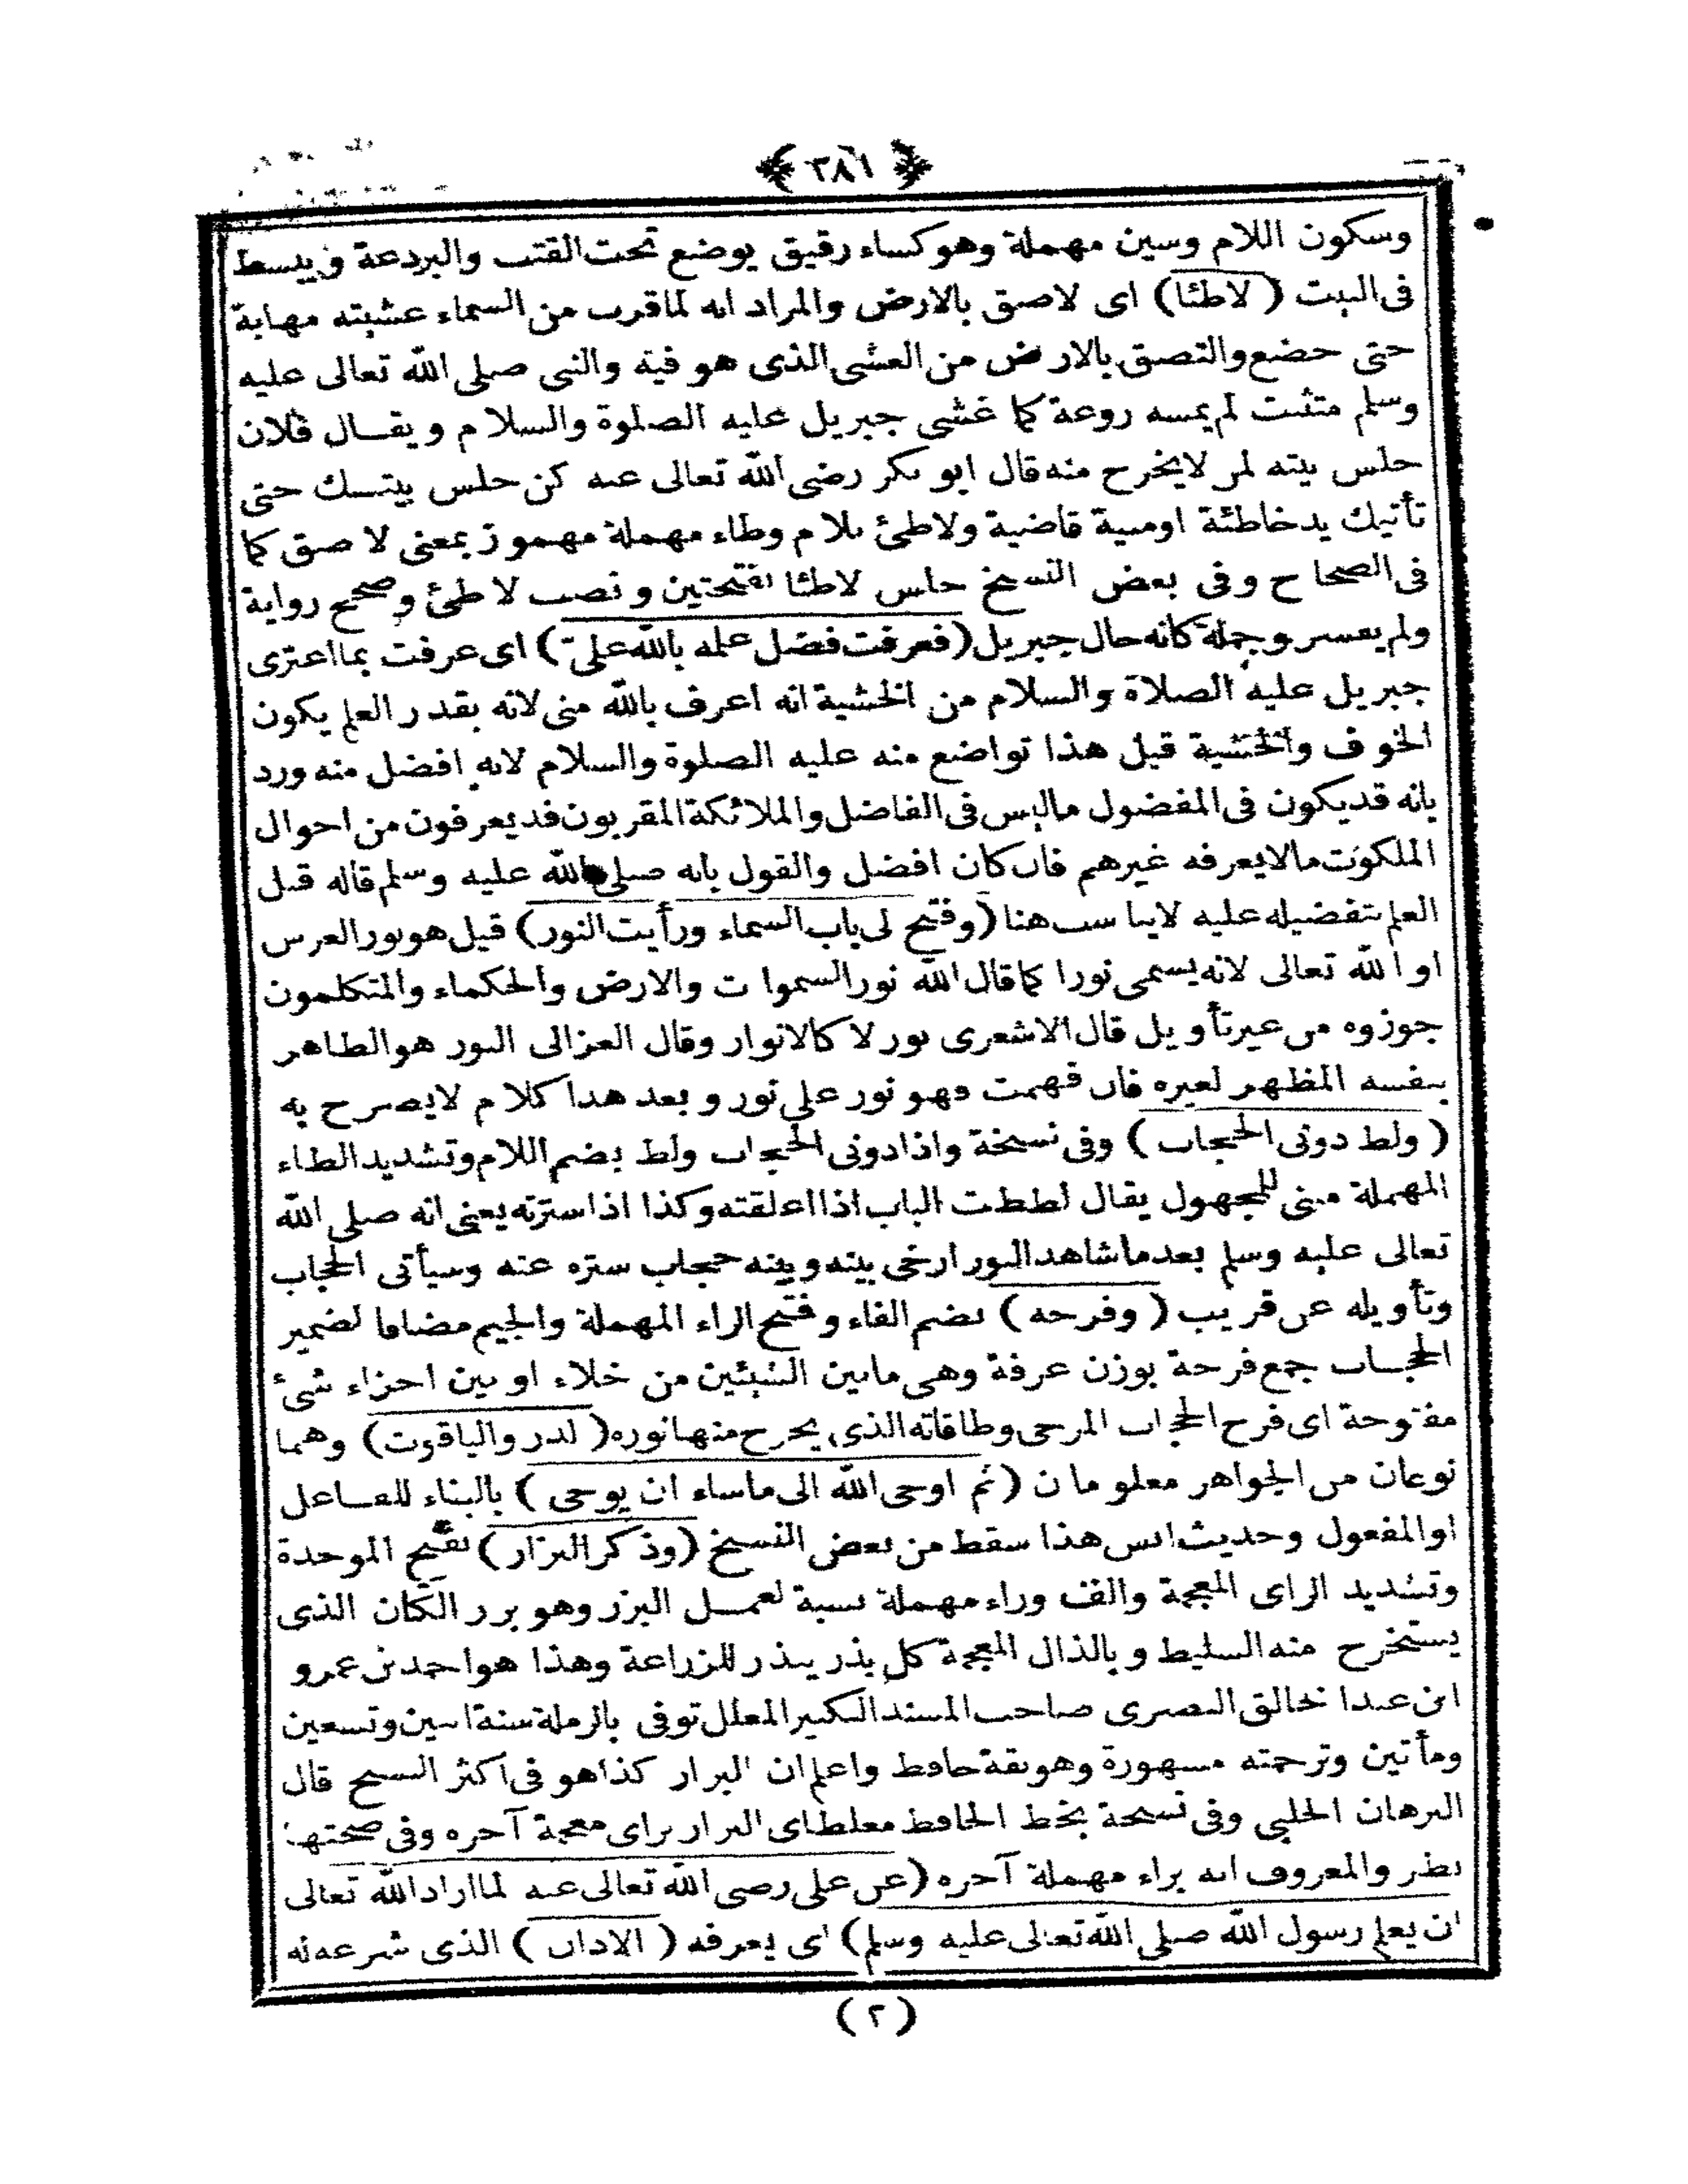 ﴿ ٣٨٦ ﴾
وسكون اللام وسين مهملة وهو كساء رقيق يوضع تحت القتب والبردعة ويبسط
فى البيت ( لاطئا ) اى لاصق بالارض والمراد انه لما قرب من السماء غشيته مهابة
حتى خضع والتصق بالارض من الغشى الذى هو فيه والنبى صلى الله تعالى عليه
وسلم متثبت لم يمسه روعة كما غشى جبريل عليه الصلوة والسلام ويقال فلان
حلس بيته لمن لا يخرج منه قال ابو بكر رضى الله تعالى عنه كن حلس بيتك حتى
تأتيك يد خاطئة اومنية قاضية ولاطئ بلام وطاء مهملة مهموز بمعنى لاصق كما
فى الصحاح وفى بعض النسخ حلس لاطئا بفتحتين ونصب لاطئ وصحح رواية
ولم يفسر وجملة كانه حال جبريل (فعرفت فضل علمه بالله علىّ) اى عرفت بما اعترى
جبريل عليه الصلاة والسلام من الخشية انه اعرف بالله منى لانه بقدر العلم يكون
الخوف والخشية قيل هذا تواضع منه عليه الصلوة والسلام لانه افضل منه ورد
بانه قد يكون فى المفضول ما ليس فى الفاضل والملائكة المقربون قد يعرفون من احوال
الملكوت مالا يعرفه غيرهم فان كان افضل والقول بانه صلى الله عليه وسلم قاله قبل
العلم بتفضيله عليه لايناسب هنا (وفتح لى باب السماء ورأيت النور) قيل هو نور العرش
او الله تعالى لانه يسمى نورا كما قال الله نور السموات والارض والحكماء والمتكلمون
جوزوه من غير تأويل قال الاشعرى نور لا كالانوار وقال الغزالى النور هو الظاهر
بنفسه المظهر لغيره فان فهمت فهو نور على نور وبعد هذا كلام لا يصرح به
( ولط دونى الحجاب ) وفى نسخة واذا دونى الحجاب ولط بضم اللام وتشديد الطاء
المهملة مبنى للمجهول يقال لططت الباب اذا اغلقته وكذا اذا سترته يعنى انه صلى الله
تعالى عليه وسلم بعد ما شاهد النور ارخى بينه وبينه حجاب ستره عنه وسيأتى الحجاب
وتأويله عن قريب ( وفرجه ) بضم الفاء وفتح الراء المهملة والجيم مضافا لضمير
الحجاب جمع فرجة بوزن غرفة وهى مابين الشيئين من خلاء او بين اجزاء شئ
مفتوحة اى فرج الحجاب المرخى وطاقاته الذى يخرج منها نوره ( لدر والياقوت ) وهما
نوعان من الجواهر معلومان ( ثم اوحى الله الى ماشاء ان يوحى ) بالبناء للفاعل
او المفعول وحديث انس هذا سقط من بعض النسخ (وذكر البزار) بفتح الموحدة
وتشديد الزاى المعجمة والف وراء مهملة نسبة لعمل البزر وهو بزر الكتان الذى
يستخرج منه السليط وبالذال المعجمة كل بذر يبذر للزراعة وهذا هو احمد بن عمرو
ابن عبدالخالق البصرى صاحب المسند الكبير المعلل توفى بالرملة سنة اثنين وتسعين
ومأتين وترجمته مشهورة وهو ثقة حافظ واعلم ان البزار كذا هو فى اكثر النسخ قال
البرهان الحلبى وفى نسخة بخط الحافظ مغلطاى البزاز بزاى معجمة آخره وفى صحتها
نظر والمعروف انه براء مهملة آخره (عن على رضى الله تعالى عنه لما اراد الله تعالى
ان يعلم رسول الله صلى الله تعالى عليه وسلم ) اى يعرفه ( الاذان ) الذى شرعه له
( ٢ )